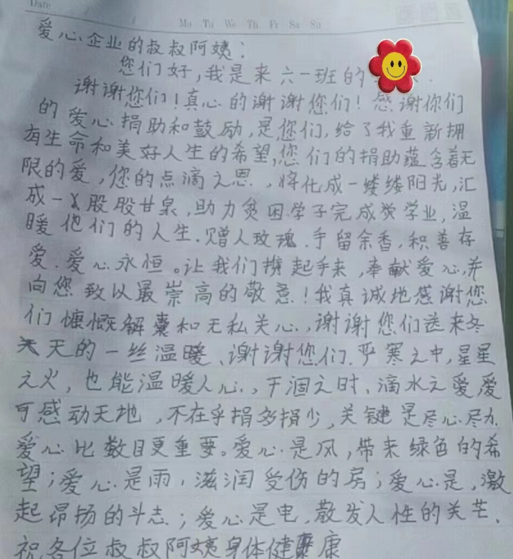 Date
Mo Tu We Th Fr Sa Su
爱心企业的叔叔阿姨：
您们好，我是来六一班的
谢谢您们！真心的谢谢您们！感谢你们
的爱心捐助和鼓励，是您们，给了我重新拥
有生命和美好人生的希望，您们的捐助蕴含着无
限的爱，您的点滴之恩，将化成一缕缕阳光，汇
成一股股甘泉，助力贫困学子完成学业，温
暖他们的人生，赠人玫瑰，手留余香，积善存
爱，爱心永恒。让我们携起手来，奉献爱心，并
向您致以最崇高的敬意！我真诚地感谢您
们慷慨解囊和无私关心，谢谢您们送来冬
天的一丝温暖、谢谢您们，严寒之中，星星
之火，也能温暖人心，干涸之时，滴水之爱，爱
可感动天地，不在乎捐多捐少，关键是尽心尽力
爱心比数目更重要。爱心是风，带来绿色的希
望；爱心是雨，滋润受伤的；爱心是，激
起昂扬的斗志；爱心是电，散发人性的关芒，
祝各位叔叔阿姨身体健康